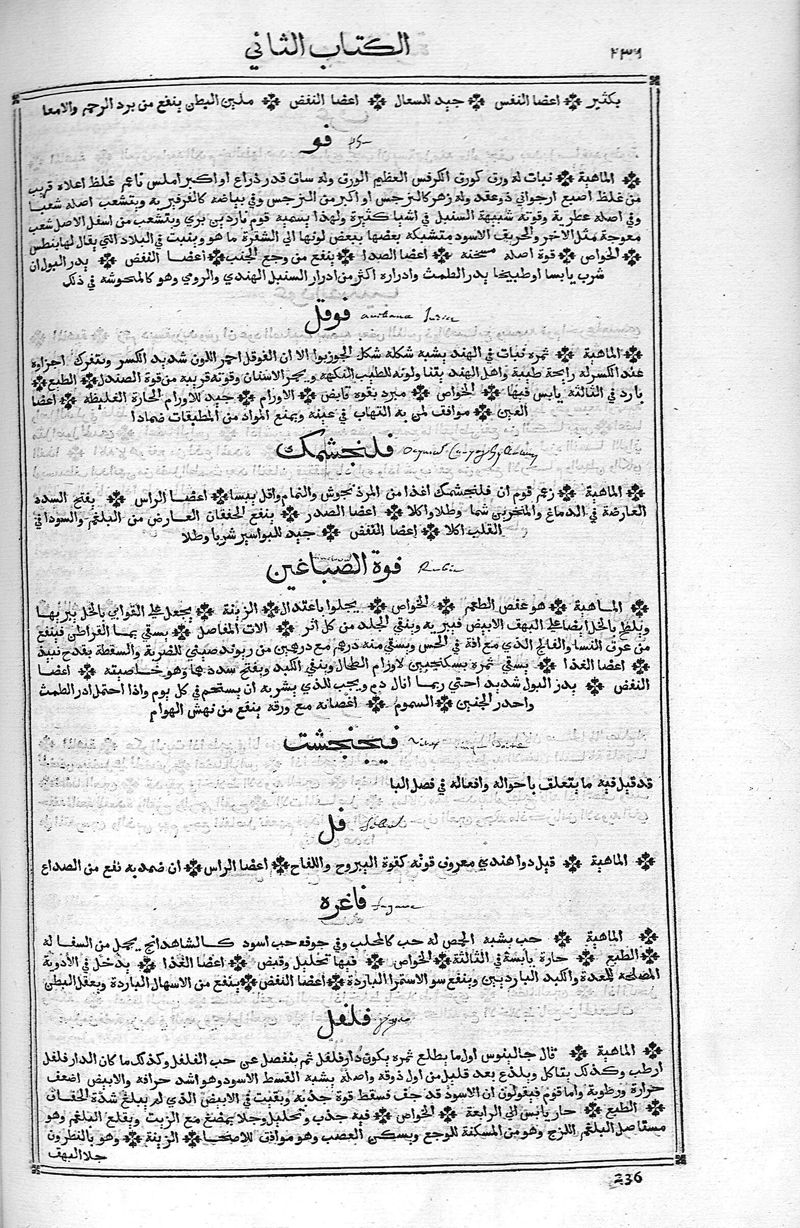 الكتاب الثاني
٢٣٦
بكثير ❊ اعضا النفس ❊ جيد للسعال ❊ اعضا النفض ❊ ملين البطن ينفع من برد الرحم والامعا
فو
❊ الماهية ❊ نبات له ورق كورق الكرفس العظيم الورق وله ساق قدر ذراع او اكبر املس ناعم غلظ اعلاه قريب
من غلظ اصبع ارجواني ذو عقد وله زهر كالنرجس او اكبر من النرجس وفي بياضه كالفرفيرية ويتشعب اصله شعبا
وفي اصله عطرية وقوته شبيهة السنبل في اشيا كثيرة ولهذا يسميه قوم ناردين بري ويتشعب من اسفل الاصل شعب
معوجة مثل الاخر والخريف الاسود متشبكة بعضها ببعض لونها الي الشقرة ما هو وينبت في البلاد التي يقال لها بنطس
❊ الخواص ❊ قوة اصله مسخنة ❊ اعضا الصدا ❊ ينفع من وجع الجنب ❊ اعضا النفض ❊ يدر البول ان
شرب يابسا او طبيخا يدر الطمث وادراره اكثر من ادرار السنبل الهندي والرومي وهو كالمنجوشه في ذلك
فوفل
❊ الماهية ❊ ثمره نبات في الهند يشبه شكله شكل الجوزبوا الا ان الفوفل احمر اللون شديد الكسر ويتفرك اجزاوه
عند الكسر له رايحة طيبة واهل الهند يقنا ولونه للطيب النكهة ويحمر الاسنان وقوته قريبة من قوة الصندل ❊ الطبع ❊
بارد في الثالثة يابس فيها ❊ الخواص ❊ مبرد بقوه قابض ❊ الاورام ❊ جيد للاورام الحارة الغليظة ❊ اعضا
العين ❊ موافق لمن به التهاب في عينه ويمنع المواد من الطبقات ضمادا
فلنجشمك
❊ الماهية ❊ زعم قوم ان فلنجشمك اغذا من المرذنجوش والنمام واقل يبسا ❊ اعضا الراس ❊ يفتح السدد
العارضة في الدماغ والمنخرين شما وطلا واكلا ❊ اعضا الصدر ❊ ينفع الخفقان العارض من البلغم والسودا في
القلب اكلا ❊ اعضا النفض ❊ جيد للبواسير شربا وطلا
فوة الصباغين Rubia
❊ الماهية ❊ هو عفص الطعم ❊ الخواص ❊ يجلوا باعتدال ❊ الزينة ❊ يجعل علي القوابي بالخل يبريها
ويلطخ بالخل ايضا علي البهق الابيض فيبريه وينقي الجلد من كل اثر ❊ الات المفاصل ❊ يسقي بما القراطن فينفع
من عرق النسا والفالج الذي مع افة في الحس ويسقي منه درهم مع درهمين من ريوند صيني للضربة والسقطة بقدح نبيذ
❊ اعضا الغذا ❊ يسقي ثمره بسكنجبين لاورام الطحال وينقي الكبد ويفتح سددهما وهو خاصيته ❊ اعضا
النفض ❊ يدر البول شديد احتي ربما ابال دم ويجب للذي يشربه ان يستحم في كل يوم واذا احتمل ادر الطمث
واحدر الجنين ❊ السموم ❊ اغصانه مع ورقه ينفع من نهش الهوام
فيجنجشت
قد قيل فيه ما يتعلق باحواله وافعاله في فصل البا
فل
❊ الماهية ❊ قيل دوا هندي معروف قوته كقوة اليبروح واللفاح ❊ اعضا الراس ❊ ان ضمد به نفع من الصداع
فاغره Fagara
❊ الماهية ❊ حب يشبه الحمص له حب كالمحلب وفي جوفه حب اسود كالشاهدانج يحمل من السفا له
❊ الطبع ❊ حارة يابسة في الثالثة ❊ الخواص ❊ فيها تحليل وقبض ❊ اعضا الغذا ❊ يدخل في الادوية
المصلحة للمعدة والكبد الباردتين وينفع سو الاستمرا الباردة ❊ اعضا النفض ❊ ينفع من الاسهال الباردة ويعقل البطن
فلفل
❊ الماهية ❊ قال جالينوس اول ما يطلع ثمره يكون دار فلفل ثم ينفصل عن حب الفلفل وكذلك ما كان الدار فلفل
ارطب وكذلك يتاكل ويلذع بعد قليل من اول ذوقه واصله يشبه القسط الاسود وهو اشد حرافة والابيض اضعف
حرارة ورطوبة واما قوم فيقولون ان الاسود قد جف فسقط قوة جذبه وبقيت في الابيض الذي لم يبلغ شدة الجفاف
❊ الطبع ❊ حار يابس الي الرابعة ❊ الخواص ❊ فيه جذب وتحليل وجلا يمضغ مع الزيت ويقلع البلغم وهو
مستاصل البلغم اللزج وهو من المسكنة للوجع ويسكن العصب وهو موافق للاصحا ❊ الزينة ❊ وهو بالنطرون
جلا البهق
236